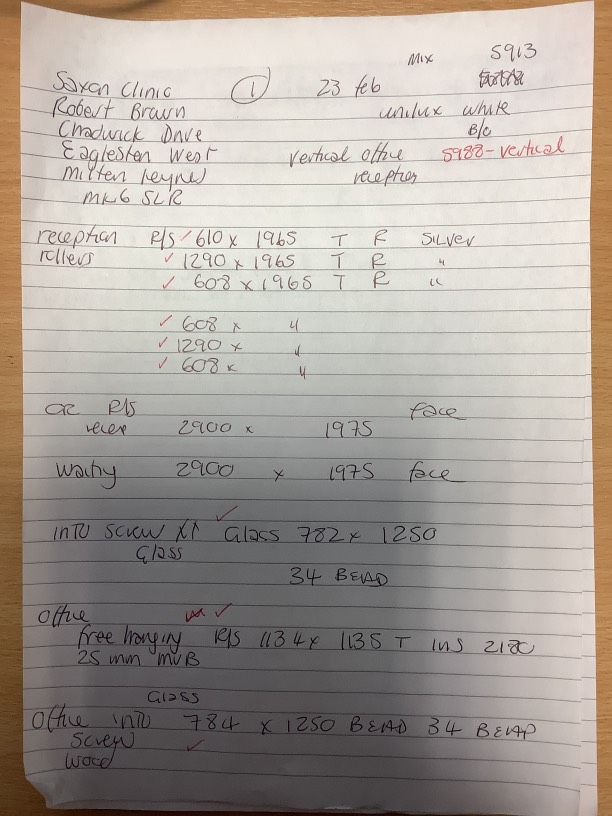 Mix 5913
Saxon Clinic ① 23 feb
Robert Brown unilux white
Chadwick Drive B/O
Eaglesten West vertical office 5988 - vertical
Milten Keynes reception
MK6 5LR
reception R/S ✓ 610 x 1965 T R Silver
rollers ✓ 1290 x 1965 T R "
✓ 608 x 1965 T R "
✓ 608 x "
✓ 1290 x "
✓ 608 x "
OR R/S face
recep 2900 x 1975
Waiting 2900 x 1975 face
✓
INTO SCREW Glass 782 x 1250
Glass
34 BEAD
Office ✓
free hanging R/S 1134 x 1135 T INS
25 mm MVB
Glass
Office INTO 784 x 1250 BEAD 34 BEAD
Screw ✓
Wood